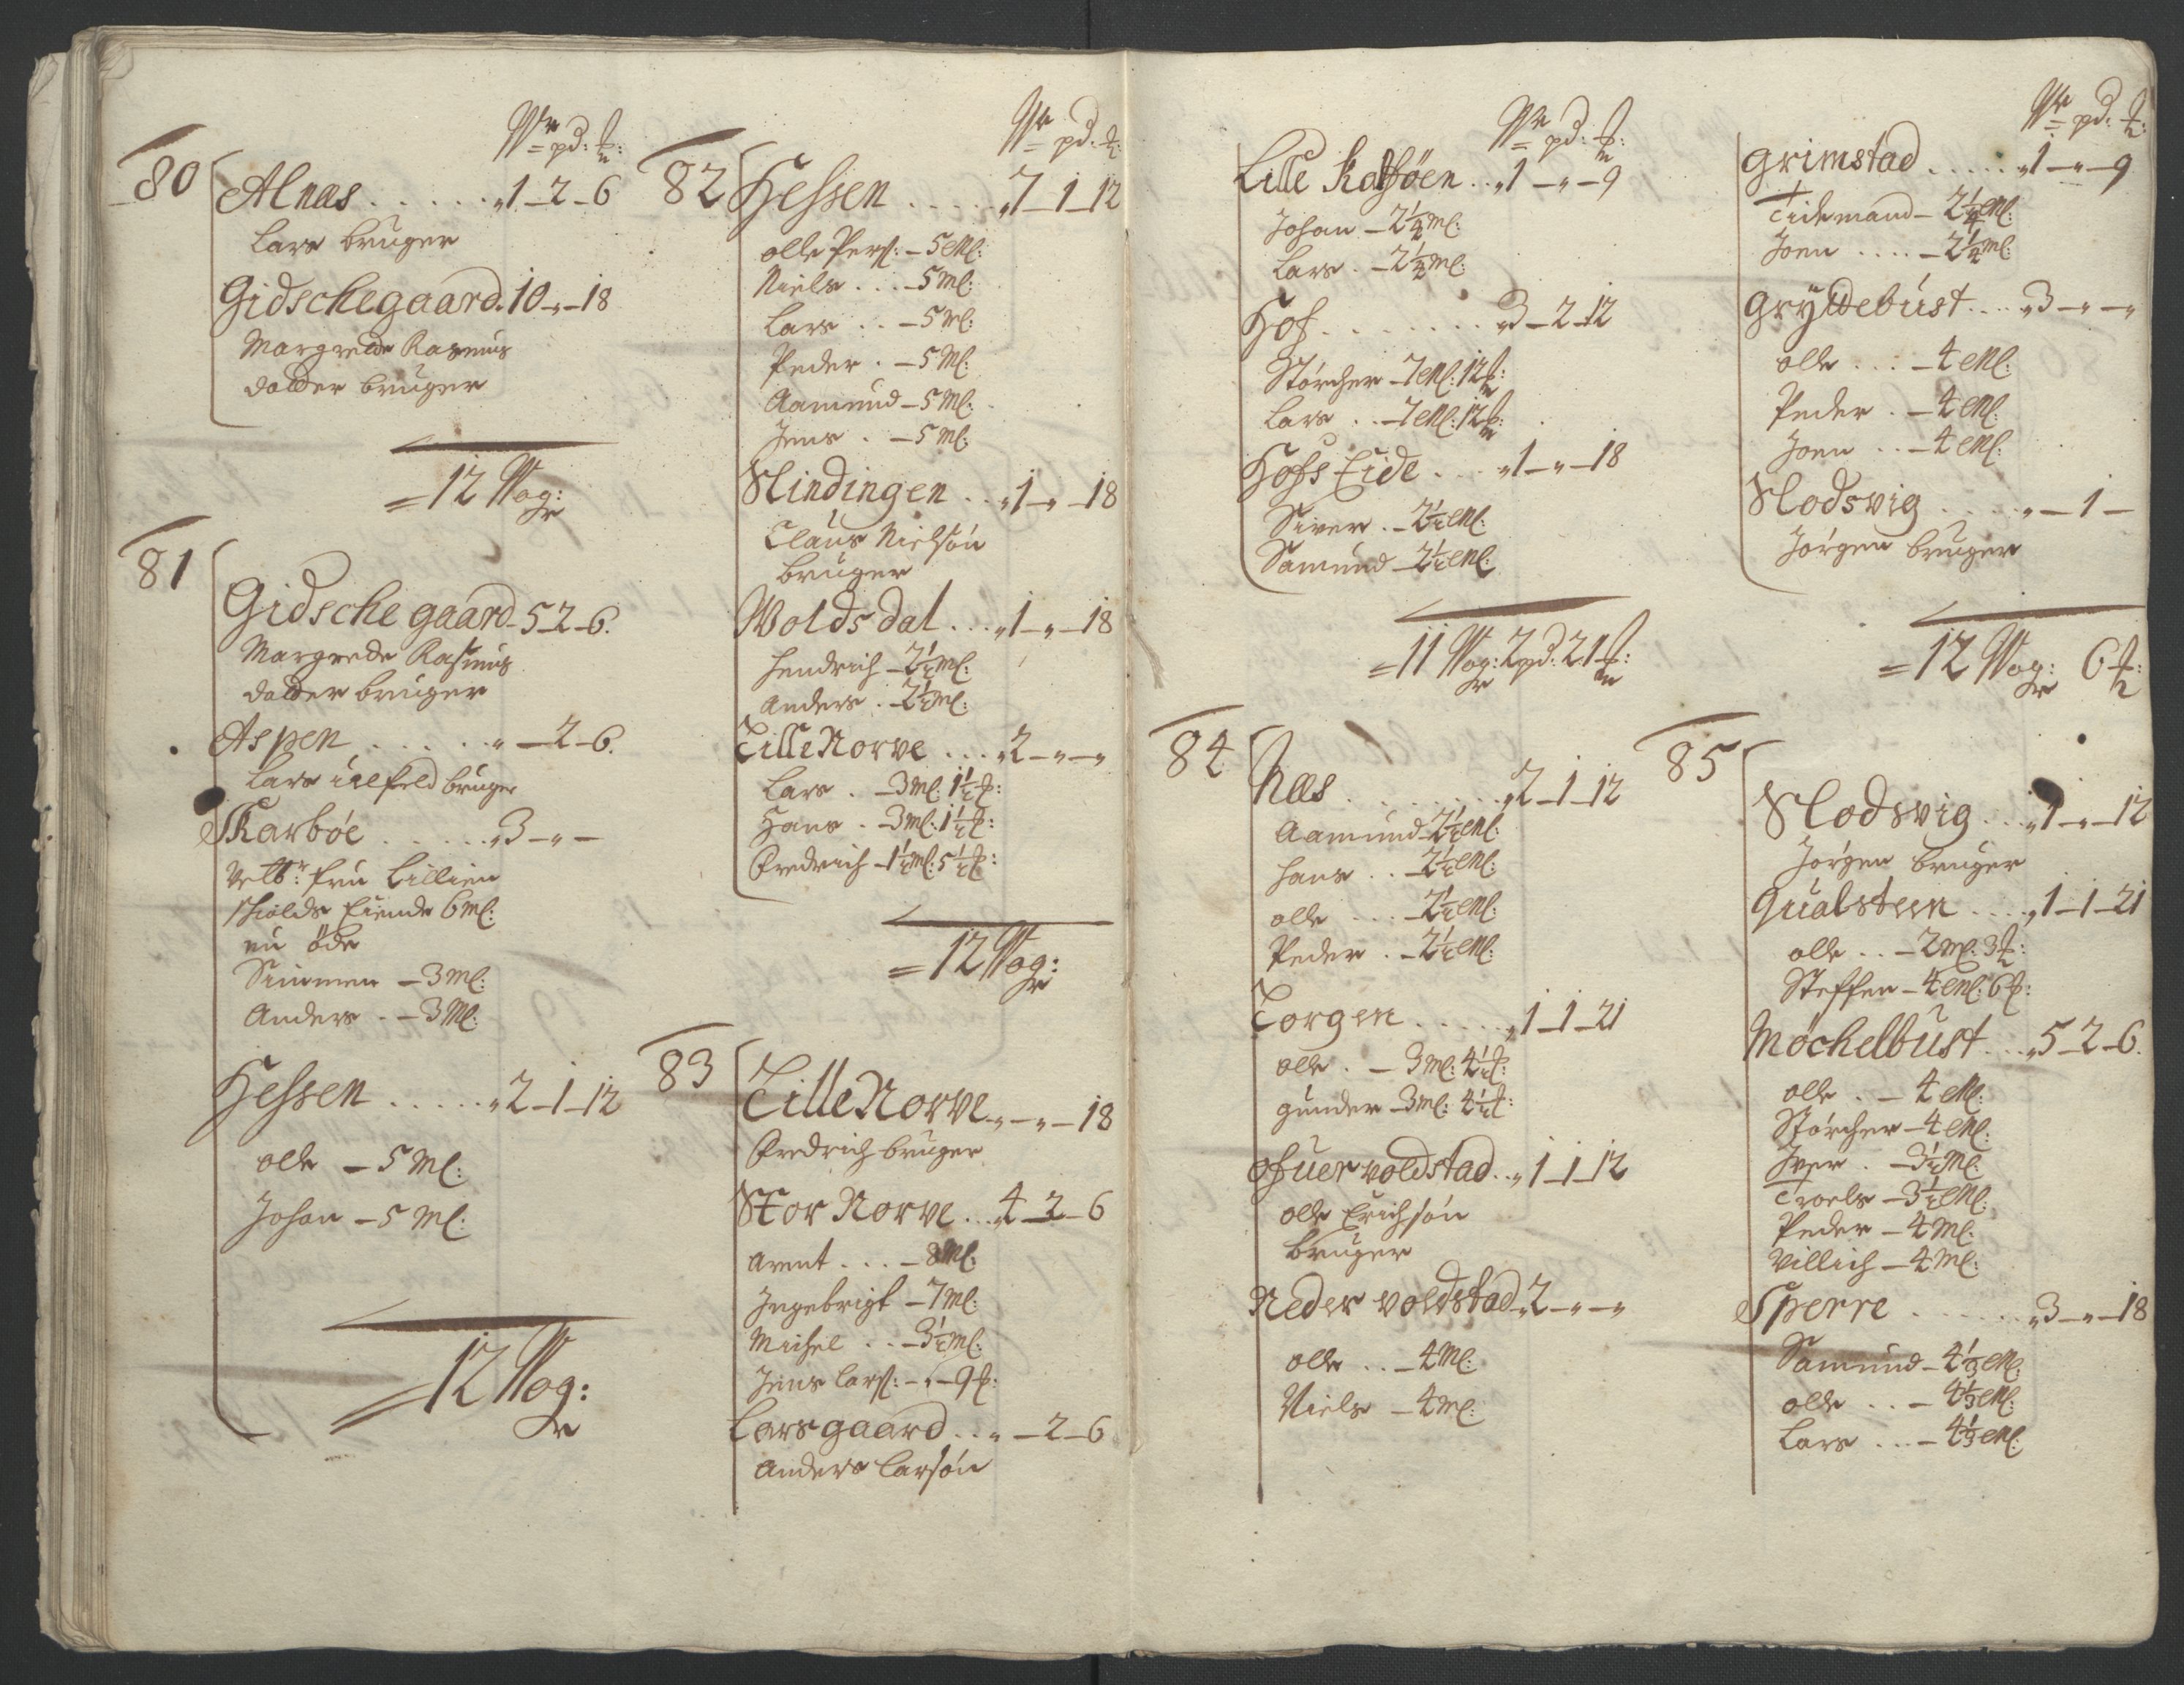 Wr pd: ℔:
80 Alnæs . . . . . „1_2_6
Lars bruger
Gidschegaard. 10_„_18
Margrede Rasmus
datter bruger
= 12 Wog:
81
Gidsche gaard_5_2_6.
Margrede Rasmus
datter bruger
Aspen . . . . . „_2_6.
Lars Uelfeld bruger
Skarbøe . . . . . „3_„_
Velb:r fru Lillien
skiolds Eiende 6 Ml:
nu öde
Simmen _ 3 Ml:
Anders . _ 3 Ml:
Hessen . . . . . „2_1_12
olle _ 5 Ml:
Johan _ 5 Ml:
= 12 Wog:
Wr pd: ℔:
82 Hessen . . . . . „7_1_12
olle Pers: _ 5 Ml:
Niels . . . _ 5 Ml:
Lars . . _ 5 Ml:
Peder . _ 5 Ml:
Aamund _ 5 Ml:
Jens . _ 5 Ml:
Slindingen . . „1_„_18
Claus Nielsøn
bruger
Woldsdal . . . „1_„_18
Hendrich _ 2½ Ml:
Anders . _ 2½ Ml:
Lille Norve . . . „2_„_„
Lars . _ 3 Ml: 1½ ℔:
Hans . _ 3 Ml: 1½ ℔:
Fredrich _ 1½ Ml: 5½ ℔:
= 12 Wog:
83
Lille Norve „_„_18
Fredrich bruger
Stor Norve . . „4_2_6
Arent . . . _ 8 Ml:
Ingebrigt _ 7 Ml:
Michel . . _ 3½ Ml:
Jens Lars: _ „ _ 9 ℔:
Larsgaard . . „_2_6
Anders Larsøn
Wr pd: ℔:
Lille Kalføen . . „1_„_9
Johan _ 2¼ Ml:
Lars . _ 2¼ Ml:
Hof . . . . . . . „3_2_12
Storcher _ 7 Ml: 12 ℔:
Lars . . _ 7 Ml: 12 ℔:
Hofs Eide . . . „1_„_18
Siver . _ 2½ Ml:
Samund _ 2½ Ml:
= 11 Wog: 2 pd: 21 ℔:
84
Næs . . . . . . . „2_1_12
Aamund 2½ Ml:
Hans . . _ 2½ Ml:
olle . . . _ 2½ Ml:
Peder . _ 2½ Ml:
Torgen . . . . . „1_1_21
olle . _ 3 Ml: 4½ ℔:
gunder _ 3 Ml: 4½ ℔:
ofuer voldstad . . „1_1_12
olle Erichsøn
bruger
Neder voldstad „2_„_„
olle . . _ 4 Ml:
Niels _ 4 Ml:
Wr pd: ℔:
grimstad . . . . . „1_„_9
Tidemand _ 2¼ Ml:
Joen . . . . _ 2¼ Ml:
gryttebust . . . „3_„_„
olle . . . _ 4 Ml:
Peder . _ 4 Ml:
Joen . . _ 4 Ml:
Slodsvig . . . . „_1_
Jørgen bruger
= 12 Wog: 6 ℔:
85
Slodsvig . . . „1_„_12
Jørgen bruger
qualsteen . . . . „1_1_21
olle . . _ 2 Ml: 3 ℔:
Steffen _ 4 Ml: 6 ℔:
Møchelbust . . . „5_2_6.
olle . _ 4 Ml:
Storcher _ 4 Ml:
Iver . _ 3½ Ml:
Troels _ 3½ Ml:
Peder _ 4 Ml:
Villich _ 4 Ml:
Sperre . . . . . . „3_„_18
Samund _ 4⅓ Ml:
olle . . _ 4⅓ Ml:
Lars . . . _ 4⅓ Ml: